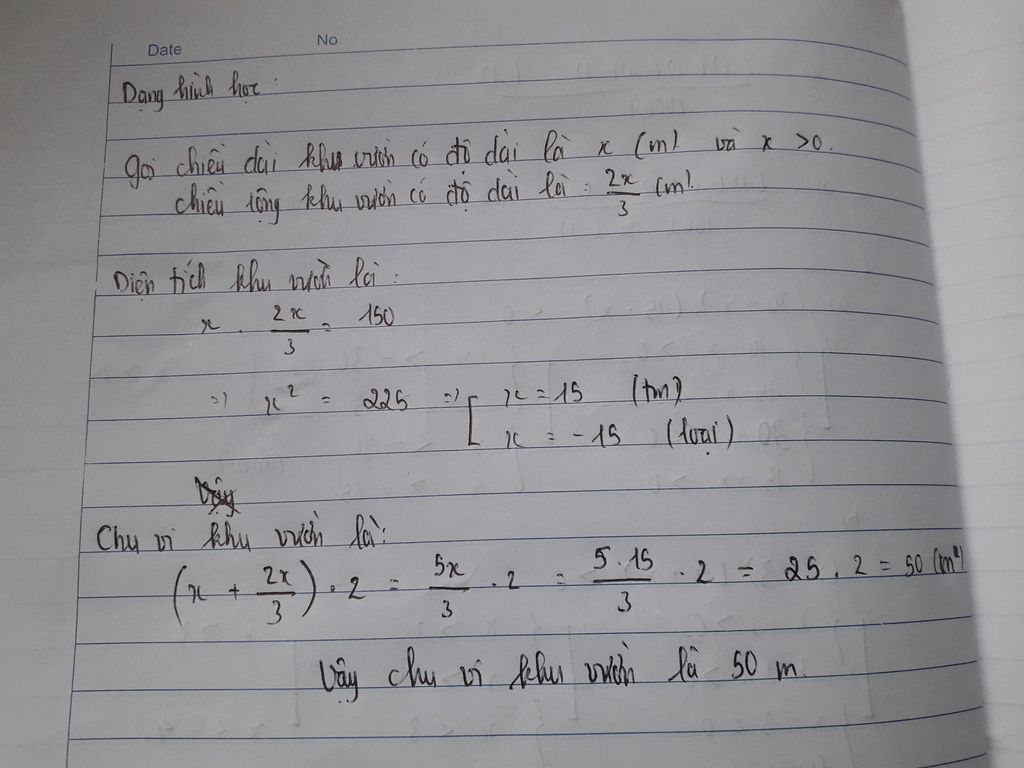 Date No
Dạng hình học :
Gọi chiều dài khu vườn có độ dài là x (m) và x > 0.
chiều rộng khu vườn có độ dài là : 2x/3 (m).
Diện tích khu vườn là :
x . 2x/3 = 150
=> x² = 225 => [ x = 15 (tm)
x = -15 (loại)
Chu vi khu vườn là :
(x + 2x/3) . 2 = 5x/3 . 2 = 5.15/3 . 2 = 25 . 2 = 50 (m²)
Vậy chu vi khu vườn là 50 m.